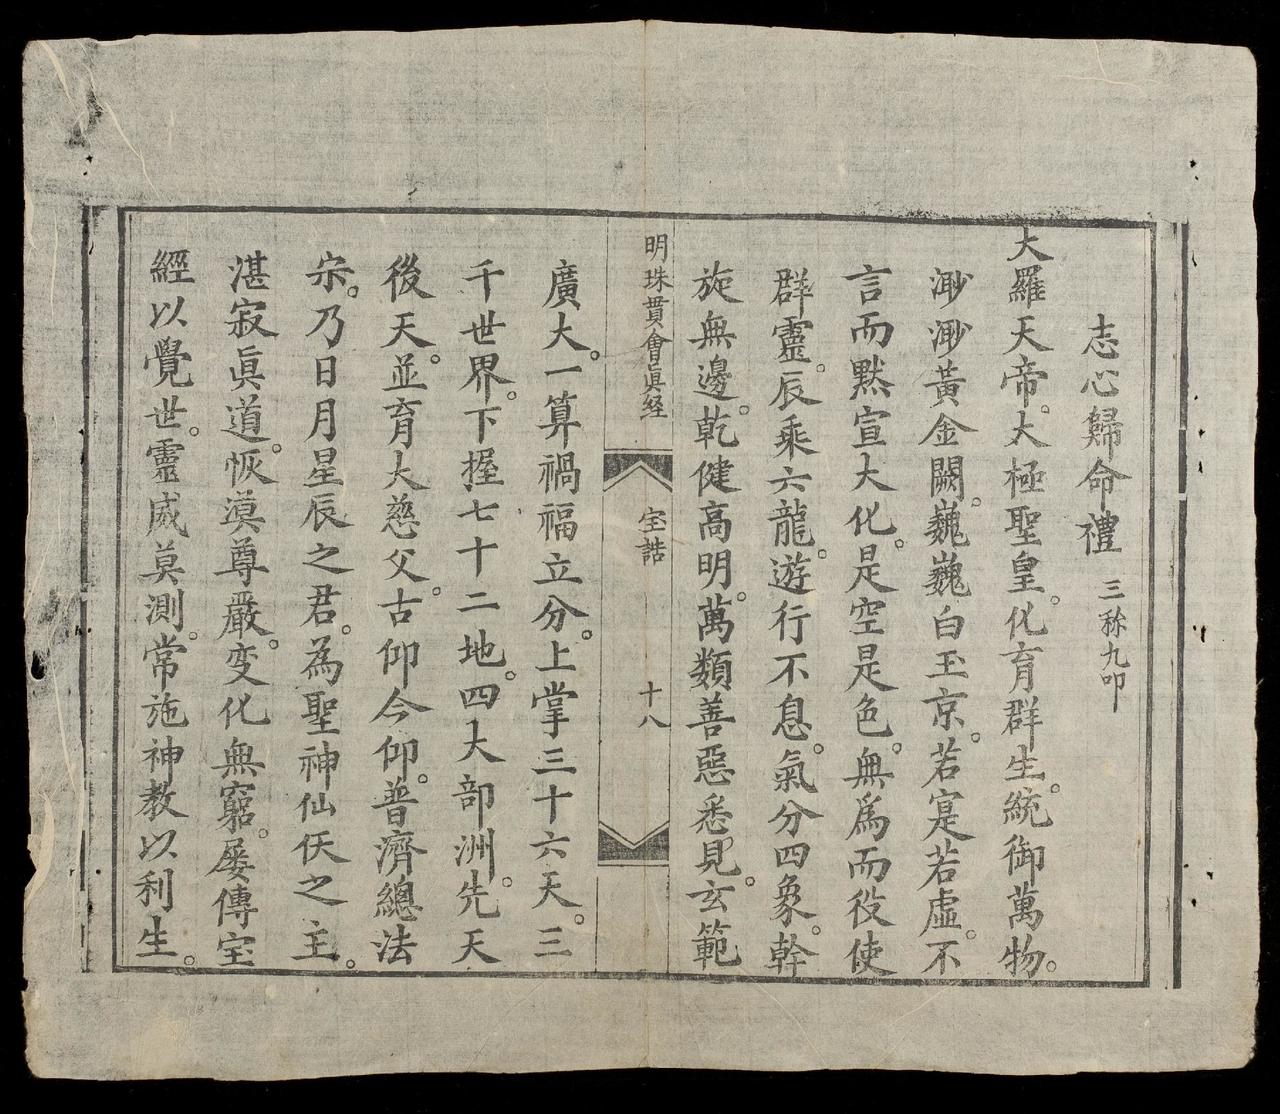 志心歸命禮 三稱九叩
大羅天帝。太極聖皇。化育群生。統御萬物。
渺渺黃金闕。巍巍白玉京。若寔若虛。不
言而黙宣大化。是空是色。無為而役使
群靈。辰乘六龍。遊行不息。氣分四象。斡
旋無邊。乾健高明。萬類善惡悉見。玄範
明珠貫會眞経 宝誥 十八
廣大。一算禍福立分。上掌三十六天。三
千世界。下握七十二地。四大部洲。先天
後天。並育大慈父。古仰今仰。普濟總法
宗。乃日月星辰之君。為聖神仙仸之主。
湛寂眞道。恢漠尊嚴。变化無窮。屡傳宝
經以覺世。靈威莫測。常施神教以利生。